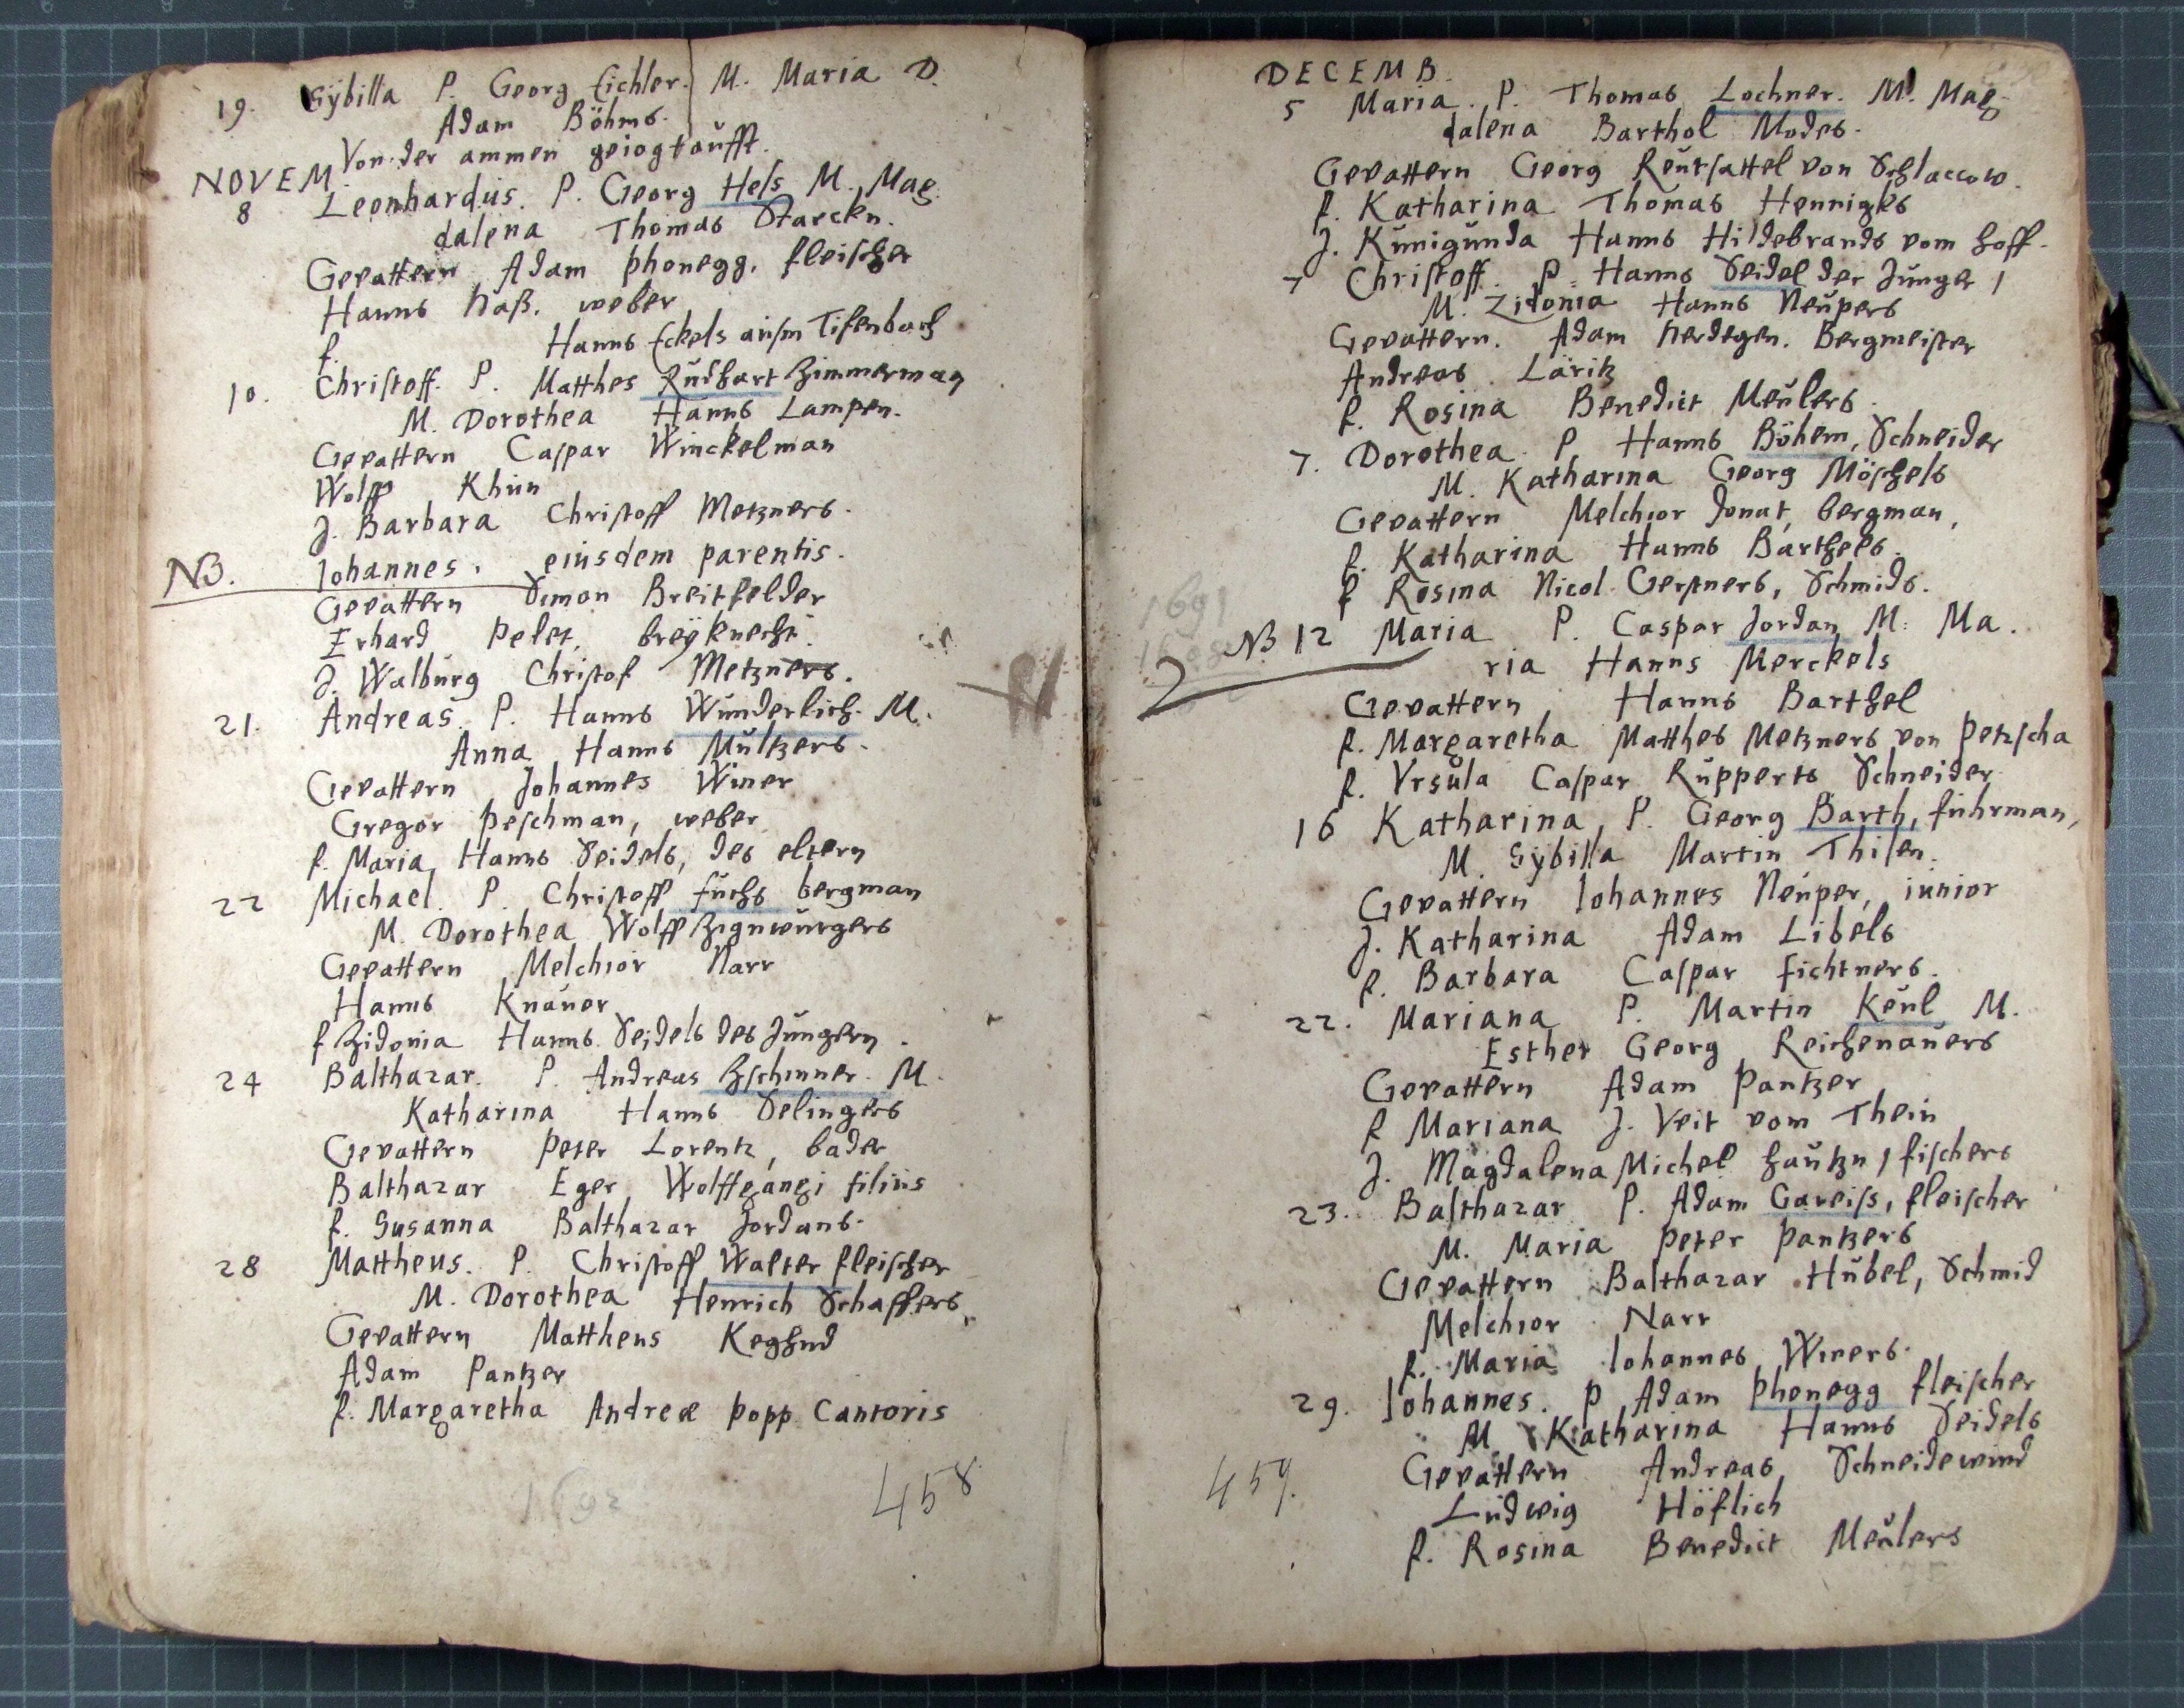 19. Sÿbilla P. Georg Eichler. M. Maria D.
Adam Böhms.
Von der ammen geiogtaufft.
NOVEM
8 Leonhardus. P. Georg Hess M. Mag
dalena Thomas Starckn.
Gevattern Adam Phonegg, fleischer
Hanns Haß, weber
f. Hanns Eckels ausm Tifenbach
10. Christoff. P. Matthes Rudhart Zimmerman
M. Dorothea Hanns Lampen.
Gevattern Caspar Winckelman
Wolff Khün
J. Barbara Christoff Metzners.
NB. Johannes. eiusdem parentis.
Gevattern Simon Breitfelder
Erhard Pelet, breÿknecht.
J. Walburg Christof Metzners.
21. Andreas. P. Hanns Wunderlich. M.
Anna Hanns Multzers.
Gevattern Johannes Winer
Gregor Peschman, weber
f. Maria Hanns Seidels, des eltern
22 Michael. P. Christoff Fuchs bergman
M. Dorothea Wolff Zignwurgers
Gevattern Melchior Narr
Hanns Knauer
f Zidonia Hanns Seidels des Jungern.
24 Balthazar. P. Andreas Zschinner. M.
Katharina Hanns Selingers
Gevattern Peter Lorentz, bader
Balthazar Eger Wolffgangi filius
f. Susanna Balthazar Jordans.
28 Mattheus. P. Christoff Walter fleischer
M. Dorothea Henrich Schaffers,
Gevattern Mattheus
Adam Pantzer
f. Margaretha Andreæ Popp Cantoris
1692
458
DECEMB.
5 Maria. P. Thomas Lochner. M. Mag
dalena Barthol Modes.
Gevattern Georg Reutsattel von Schlaccow.
f. Katharina Thomas Hennigks
J. Kunigunda Hanns Hildebrands vom hoff.
7 Christoff. P. Hanns Seidel der Junger /
M. Zidonia Hanns Neupers
Gevattern. Adam Herdegen. Bergmeister
Andreas Löritz
f. Rosina Benedict Meulers.
7. Dorothea. P Hanns Böhem, Schneider
M. Katharina Georg Möschels
Gevattern Melchior Donat, bergman,
f. Katharina Hanns Barthels.
f Rosina Nicol Gerstners, Schmids.
1691
NB 12 Maria P. Caspar Jordan M. Ma.
ria Hanns Merckels
Gevattern Hanns Barthel
f. Margaretha Matthes Metzners von Petzscha
f. Vrsula Caspar Rupperts Schneider
16 Katharina, P. Georg Barth, fuhrman,
M. Sÿbilla Martin Thilen.
Gevattern Johannes Neuper, iunior
J. Katharina Adam Libels
f. Barbara Caspar Fichtners.
22. Mariana P. Martin Keul M.
Esther Georg Reichenauers
Gevattern Adam Pantzer
f Mariana J. Veit vom Thein
J. Magdalena Michel Hautzn, fischers
23. Balthazar P. Adam Gareiss, fleischer
M. Maria Peter Pantzers
Gevattern Balthazar Hubel, Schmid
Melchior Narr
f. Maria Johannes Winers.
29. Johannes. P Adam Phonegg fleischer
M Katharina Hanns Seidels
Gevattern Andreas Schneidewind
Ludwig Höflich
f. Rosina Benedict Meulers
459.